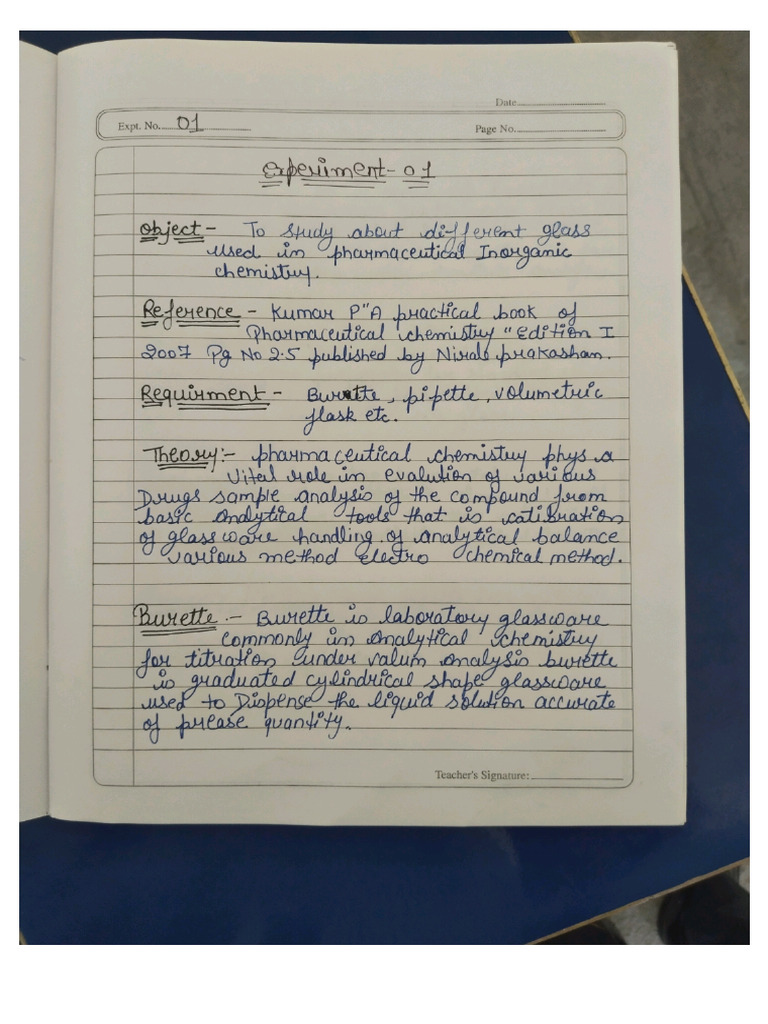 Date
Expt. No. 01
Page No.
Experiment-01
Object - To study about different glass
used in pharmaceutical Inorganic
chemistry.
Reference - Kumar P "A practical book of
Pharmaceutical chemistry" Edition I
2007 Pg No 2.5 published by Nirali prakashan.
Requirment - Burette, pipette, volumetric
flask etc.
Theory:- pharmaceutical chemistry phys a
vital role in evalution of various
Drugs sample analysis of the compound from
basic analytital tools that is catibration
of glassware handling of analytical balance
various method electro chemical method.
Burette - Burette is laboratory glassware
commonly in analytical chemistry
for titration under valum analysis burette
is graduated cylindrical shape glassware
used to Dispense the liquid solution accurate
of prease quantity.
Teacher's Signature: